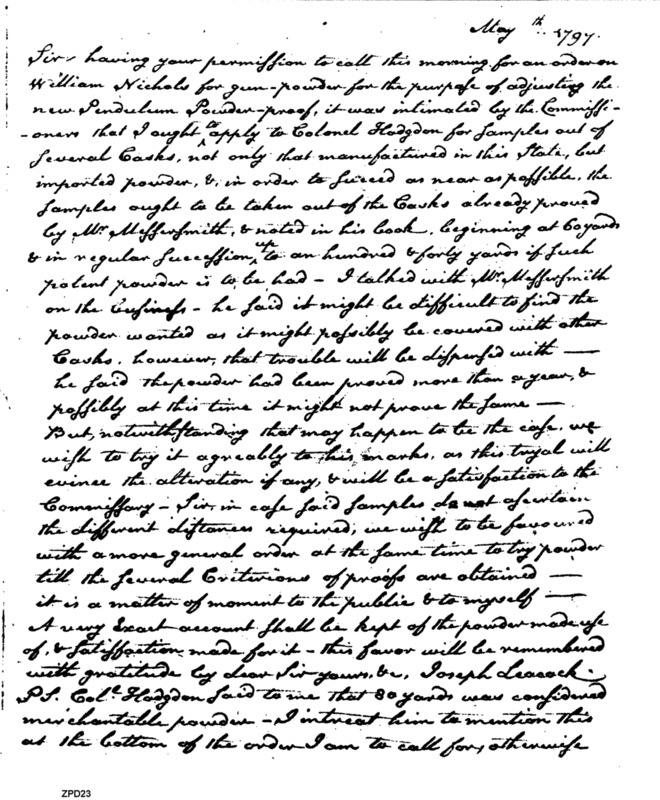 May th.. 1797.
Sir, having your permission to call this morning for an order on
William Nichols for gun-powder for the purpose of adjusting the
new Pendulum Powder-proof, it was intimated by the Commissi-
-oners that I ought to apply to Colonel Hodgdon for samples out of
several Casks, not only that manufactured in this State, but
imported powder, &, in order to succeed as near as possible, the
samples ought to be taken out of the Casks already proved
by Mr. Messersmith, & noted in his book, beginning at 60 yards
& in regular succession, up to an hundred & forty yards if such
potent powder is to be had - I talked with Mr. Messersmith
on the business - he said it might be difficult to find the
powder wanted as it might possibly be covered with other
Casks. however, that trouble will be dispensed with —
he said the powder had been proved more than a year, &
possibly at this time it might not prove the same —
But, notwithstanding that may happen to be the case, we
wish to try it agreably to his marks, as this tryal will
evince the alteration if any, & will be a satisfaction to the
Commissary - Sir, in case said samples do not ascertain
the different distances required, we wish to be favoured
with a more general order at the same time to try powder
till the several Criterions of proofs are obtained —
it is a matter of moment to the public & to myself —
A very Exact account shall be kept of the powder made use
of, & satisfaction made for it - this favor will be remembered
with gratitude by dear Sir yours, &c, Joseph Leacock.
P.S. Col. Hodgdon said to me that 80 yards was considered
merchantable powder - I intreat him to mention this
at the bottom of the order I am to call for, otherwise
ZPD23